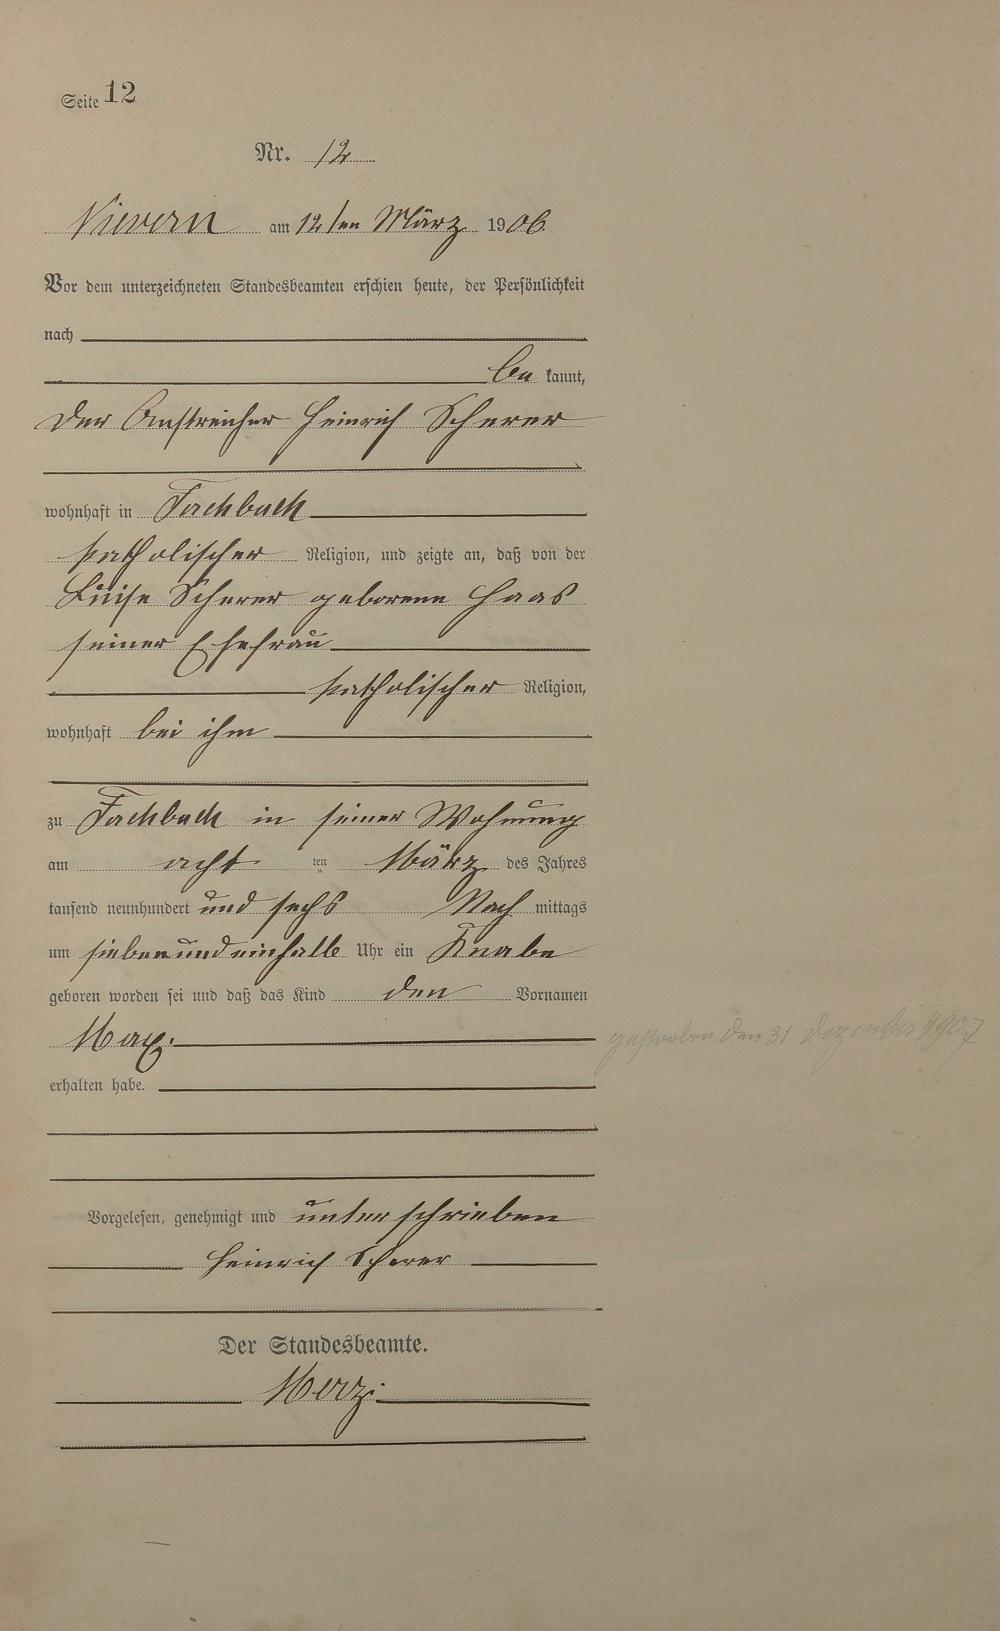 Seite 12
Nr. 12
Nievern am 12ten März 1906.
Vor dem unterzeichneten Standesbeamten erschien heute, der Persönlichkeit
nach
be kannt,
der Anstreicher Heinrich Scherer
wohnhaft in Fachbach
katholischer Religion, und zeigte an, daß von der
Luise Scherer geborene Haas
seiner Ehefrau
katholischer Religion,
wohnhaft bei ihm
zu Fachbach in seiner Wohnung
am acht ten März des Jahres
tausend neunhundert und sechs Nach mittags
um sieben und einhalb Uhr ein Knabe
geboren worden sei und daß das Kind den Vornamen
Max.
gestorben den 31 Dezember 1907
erhalten habe.
Vorgelesen, genehmigt und unterschrieben
Heinrich Scherer
Der Standesbeamte.